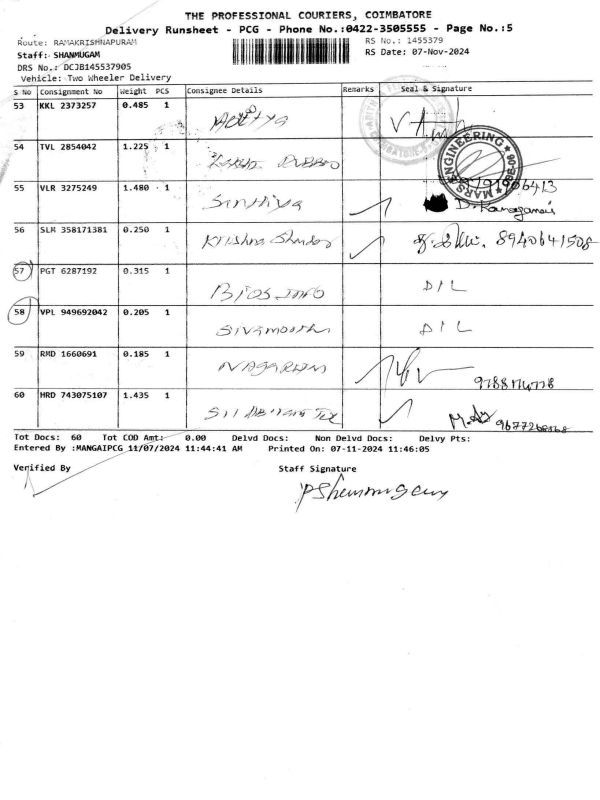 THE PROFESSIONAL COURIERS, COIMBATORE
Delivery Runsheet - PCG - Phone No.:0422-3505555 - Page No.:5
Route: RAMAKRISHNAPURAM RS No.: 1455379
Staff: SHANMUGAM RS Date: 07-Nov-2024
DRS No.: DCJB145537905
Vehicle: Two Wheeler Delivery
S No Consignment No Weight PCS Consignee Details Remarks Seal & Signature
53 KKL 2373257 0.485 1
54 TVL 2854042 1.225 1
MARS ENGINEERING
55 VLR 3275249 1.480 1 Sinthiya
56 SLM 358171381 0.250 1 Krishna 8940641508
57 PGT 6287192 0.315 1 Bios Info D/L
58 VPL 949692042 0.205 1 Sivamoorthi D/L
59 RMD 1660691 0.185 1
60 HRD 743075107 1.435 1
Tot Docs: 60 Tot COD Amt: 0.00 Delvd Docs: Non Delvd Docs: Delvy Pts:
Entered By :MANGAIPCG 11/07/2024 11:44:41 AM Printed On: 07-11-2024 11:46:05
Verified By Staff Signature